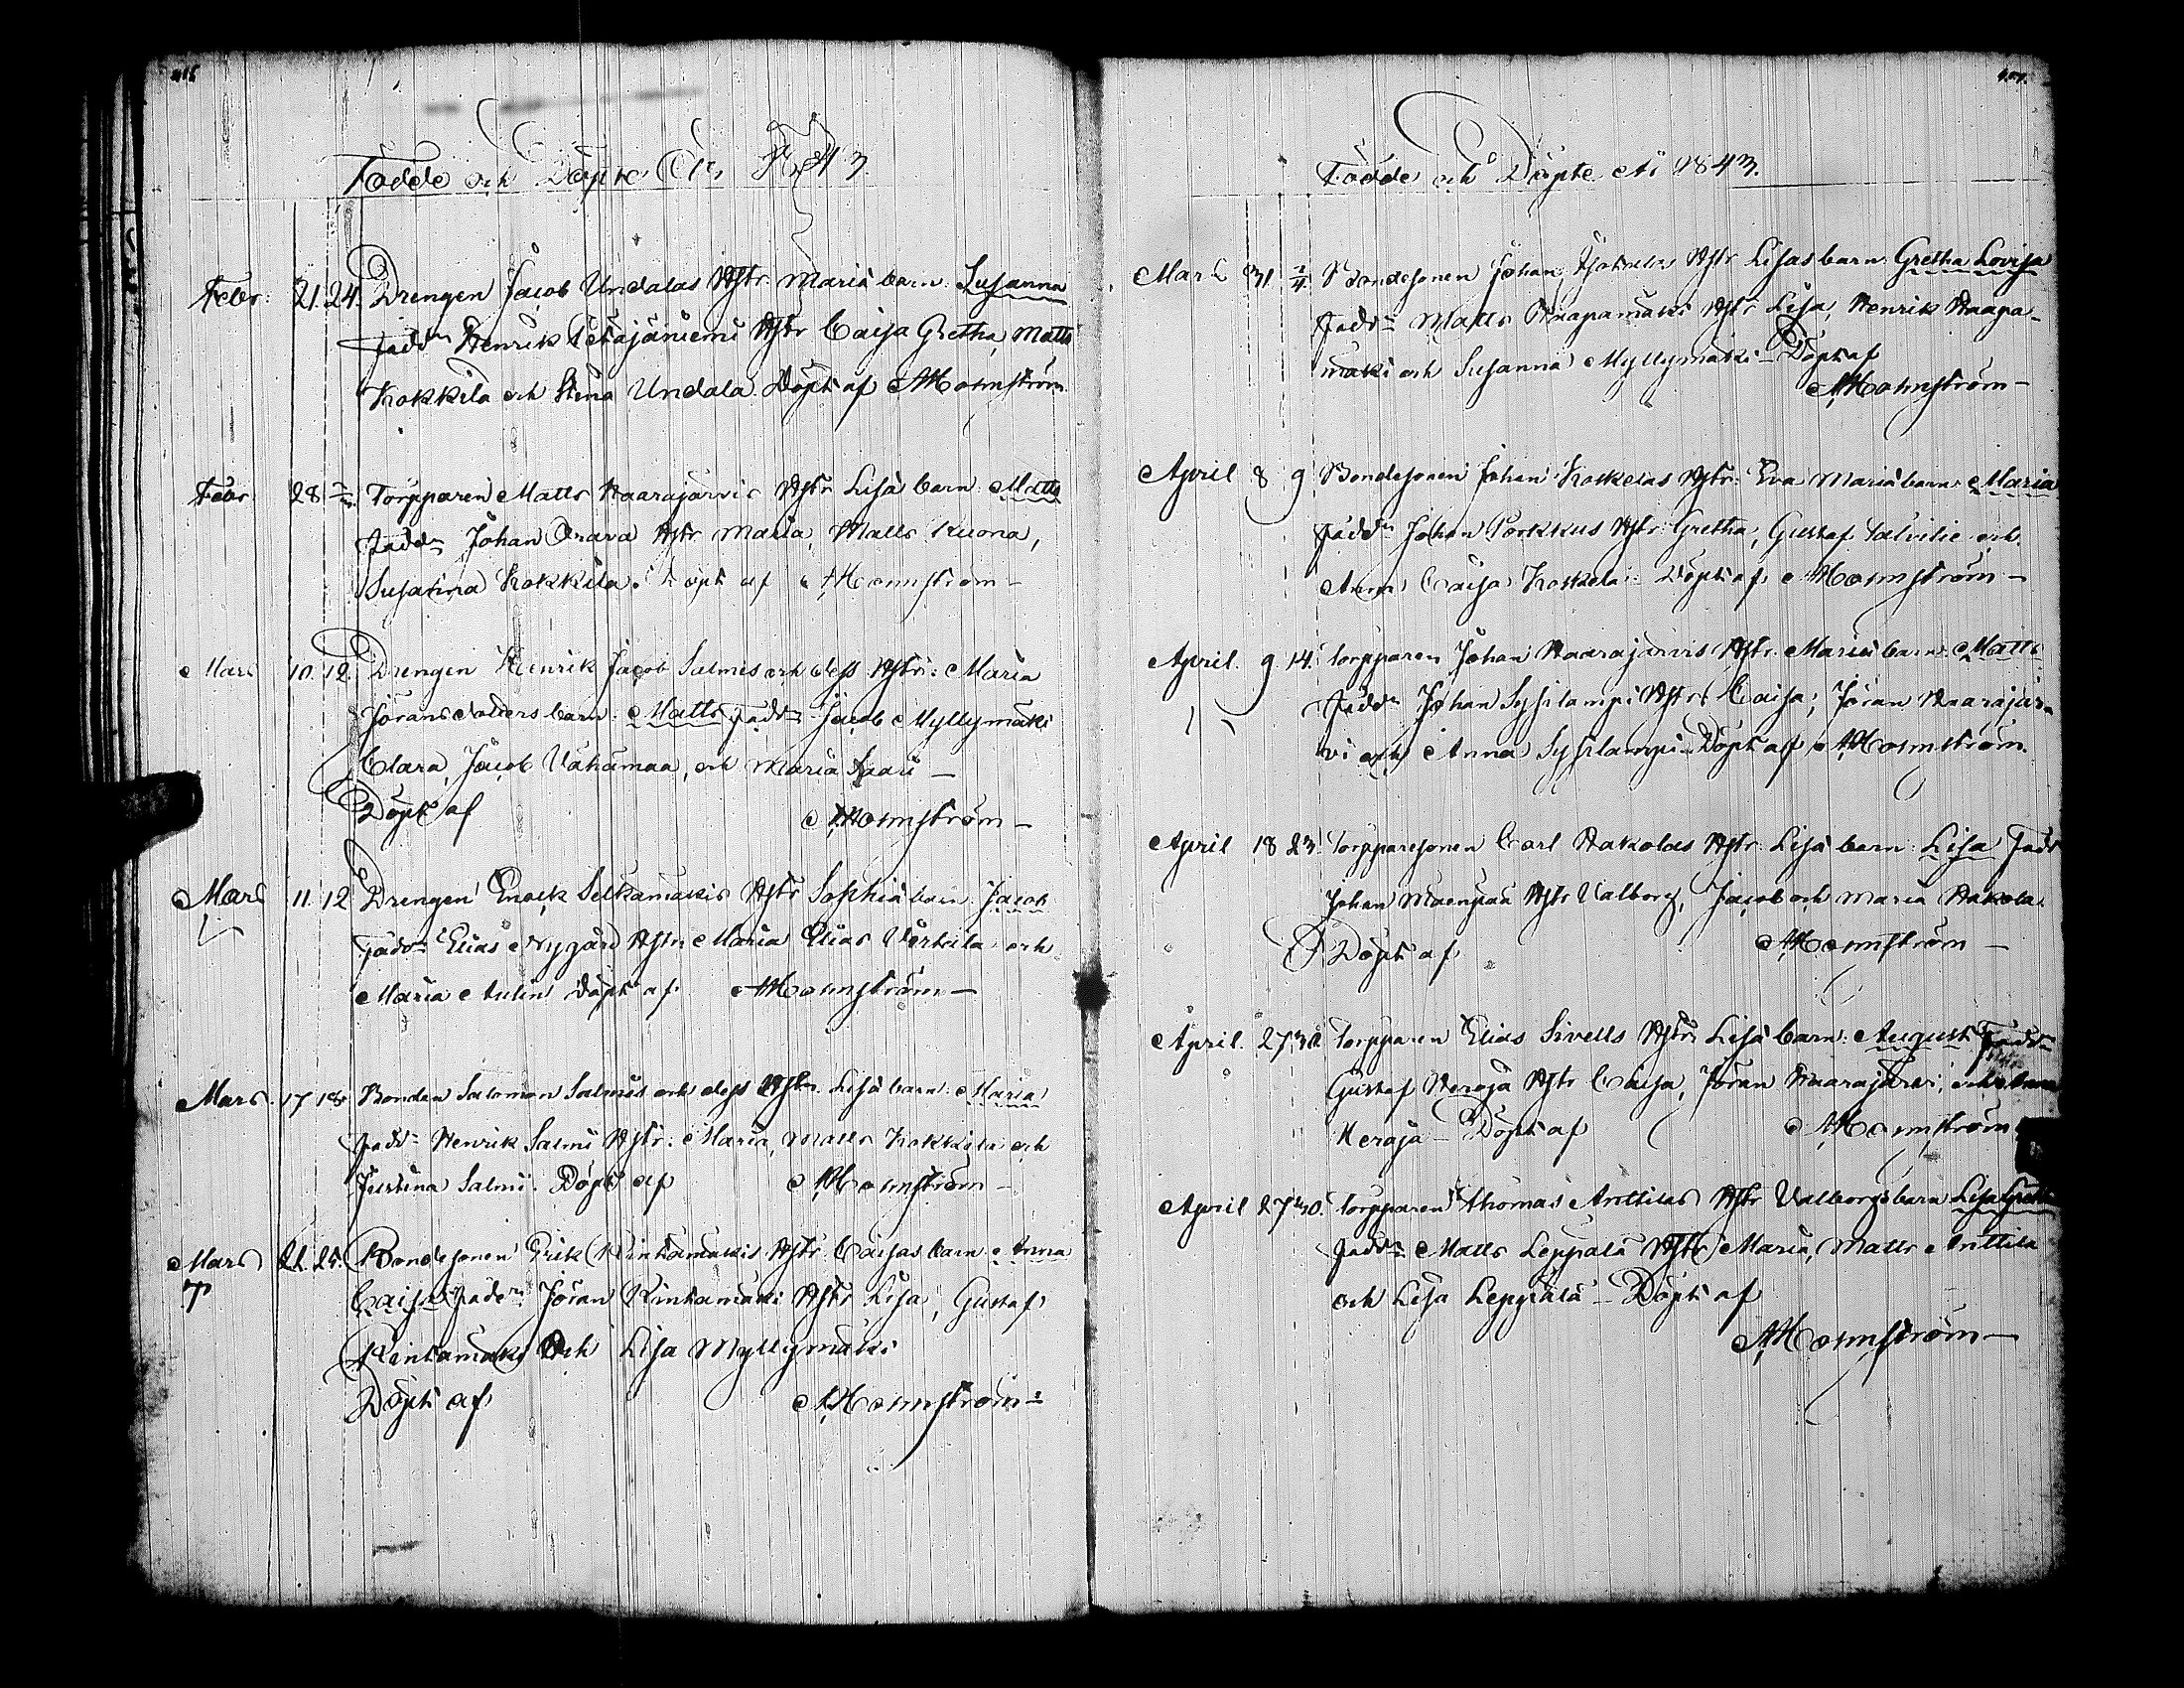 Födde och Döpte År 1843.
Febr: 21. 24. Drengen Jacob Undalas Hstr. Mariä barn: Susanna
Fadd: Henrik Petäjäniemi Hstr Caisa Gretha, Matts
Kokkila och Stina Undala. Döpt af A. Holmström
Febr 28 Torpparen Matts Haarajärvis Hstr Lisä barn: Matts
Fadd: Johan Orava Hstr Maria, Matts Kuona,
Susanna Kokkila. Döpt af A. Holmström –
Mars 10. 12. Drengen Henrik Jacob Salmis och dess Hstr: Maria
Jörans dotters barn: Matts Fadd: Jacob Myllymäki
Clara, Jacob Vähämaa, och Maria Saari –
Döpt af A. Holmström –
Mars 11. 12 Drengen Enock Selkämäkis Hstr Sophiä barn: Jacob
Fadd: Elias Nygård Hstr: Maria Elias och
Maria Aulin Döpt af A. Holmström –
Mars. 17 18. Bonden Salomon Salmis och dess Hstr. Lisä barn: Maria
Fadd: Henrik Salmi Hstr: Maria, Matts Kokkila och
Justina Salmi. Döpt af A. Holmström –
Mars 21. 25. Bondesonen Erik Rintamäkis Hstr Caisas barn: Anna
Caisa Fadd: Jöran Rintamäki Hstr Lisa, Gustaf
Rintamäki och Lisa Myllymäki
Döpt af A. Holmström –
Födde och Döpte År 1843.
Mars 31 2/4 Bondesonen Johan Hstr Lisas barn: Gretha Lovisa
Fadd: Matts Haapamäki Hstr Lisa, Henrik Haapa-
mäki och Susanna Myllymäki – Döpt af
A. Holmström –
April 8 9 Bondesonen Johan Koskelas Hstr: Eva Mariä barn: Maria
Fadd: Johan Porkkus Hstr: Gretha, Gustaf Talvitie och
Anna Caisa Koskela. Döpt af A. Holmström –
April. 9. 14. Torpparen Johan Haarajärvis Hstr. Mariä barn: Matts
Fadd: Johan Sysilampi Hstr Caisa; Jöran Haarajär-
vi och Anna Sysilampi – Döpt af A. Holmström.
April 18 23. Torpparesonen Carl Hakolas Hstr: Lisä barn: Lisa Fadd
Johan Mäenpää Hstr Valborg, Jacob och Maria Hakola.
Döpt af A. Holmström –
April. 27 30 Torpparen Elias Sivells Hstr: Lisä barn: August Fadd:
Gustaf Heroja Hstr Caisa, Jöran Haarajärvi, och
Heroja – Döpt af A. Holmström
April 27 30. Torpparen Thomas Anttilas Hstr Valborgs barn Lisa Gretha
Fadd: Matts Leppälä Hstr Maria, Matts Anttila
och Lisa Leppälä – Döpt af
A. Holmström –